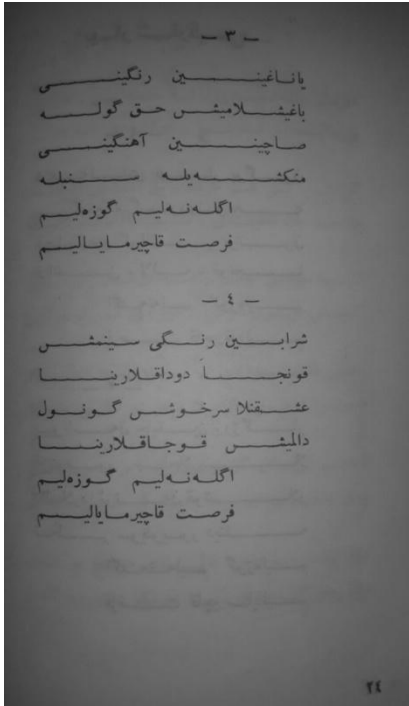 — ٣ —
یاناغینین رنگینی
باغیشلامیش حق گوله
صاچینین آهنگینی
منکشه‌یله سنبله
اگله‌نه‌لیم گوزه‌لیم
فرصت قاچیرمایالیم
— ٤ —
شرابین رنگی سینمش
قونجا دوداقلارینا
عشقنلا سرخوش گونول
دالمیش قوجاقلارینا
اگله‌نه‌لیم گوزه‌لیم
فرصت قاچیرمایالیم
٢٤